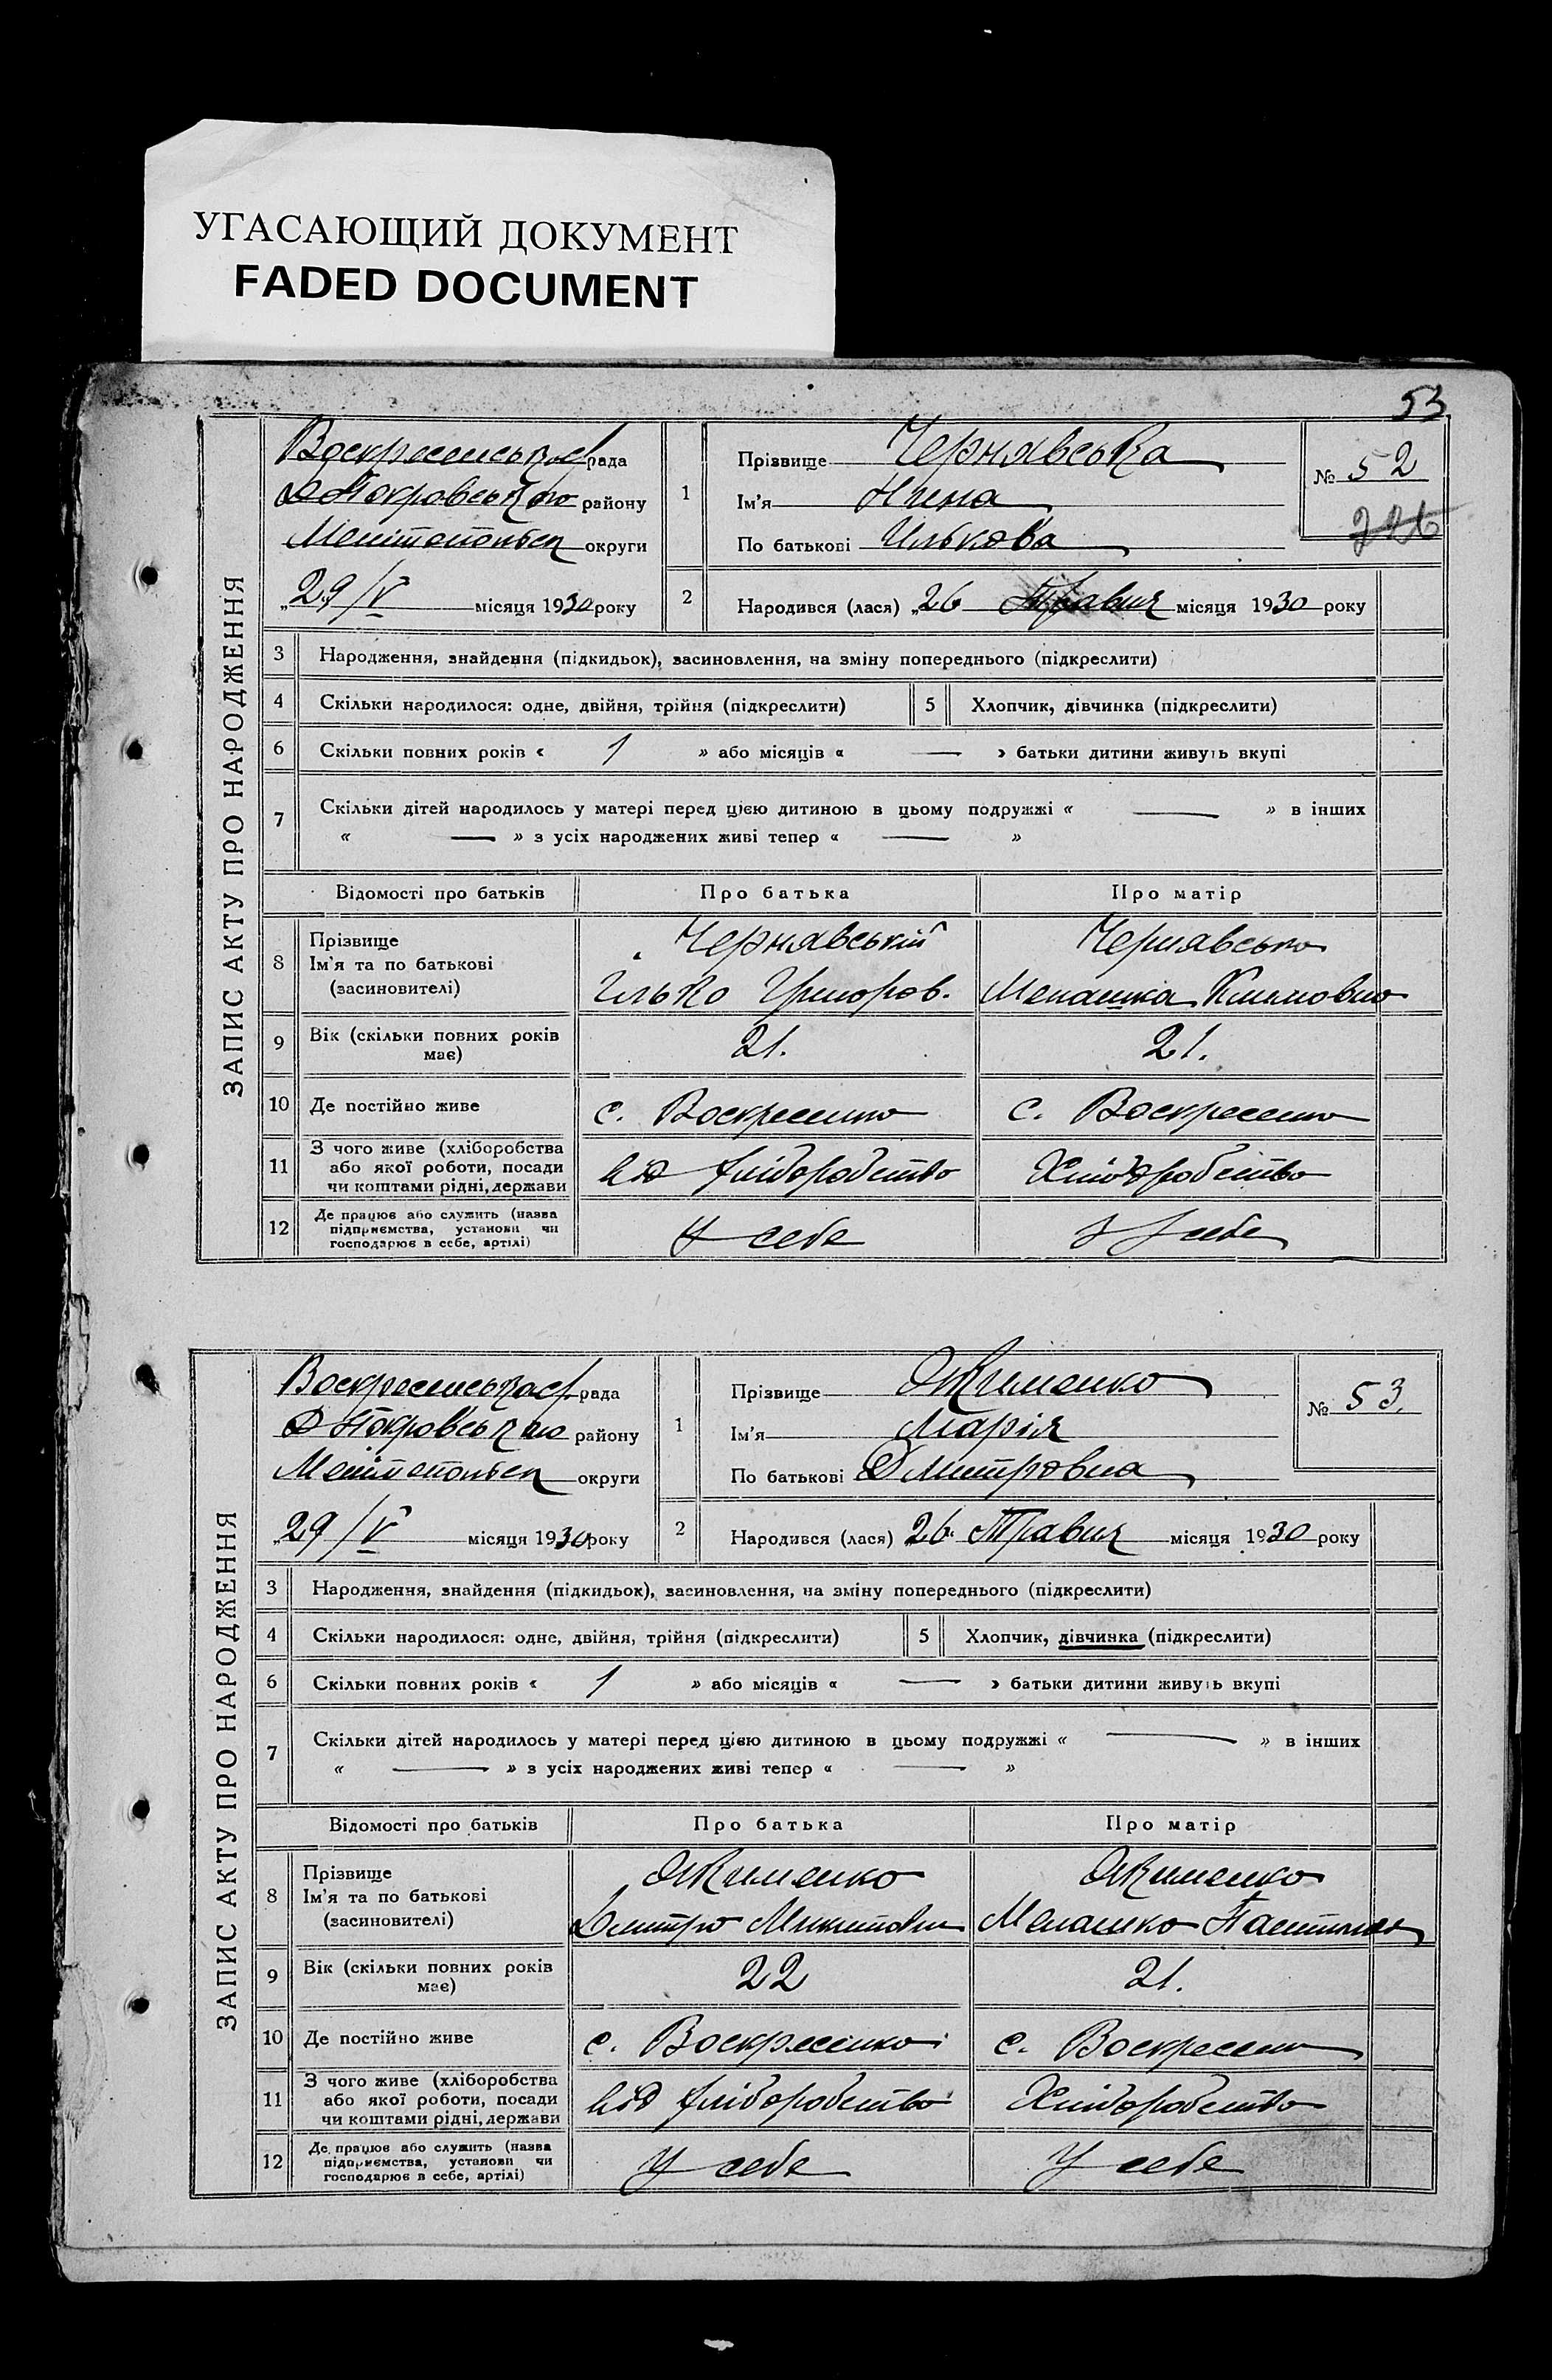 УГАСАЮЩИЙ ДОКУМЕНТ
FADED DOCUMENT
53
ЗАПИС АКТУ ПРО НАРОДЖЕННЯ
рада
району
Мелітопольск округи
„29/V місяця 1930 року
1
Прізвище Чернявська
Ім'я
По батькові Илькова
№ 52
226
2
Народився (лася) „26 Травня місяця 1930 року
3 Народження, знайдення (підкидьок), засиновлення, на зміну попереднього (підкреслити)
4 Скільки народилося: одне, двійня, трійня (підкреслити) 5 Хлопчик, дівчинка (підкреслити)
6 Скільки повних років « 1 » або місяців « — » батьки дитини живуть вкупі
7 Скільки дітей народилось у матері перед цією дитиною в цьому подружжі « — » в інших
« — » з усіх народжених живі тепер « — »
Відомості про батьків Про батька Про матір
8 Прізвище
Ім'я та по батькові
(засиновителі)
Чернявський
Ілько Григоров.
Чернявська
Меланка
9 Вік (скільки повних років має) 21. 21.
10 Де постійно живе с. Воскресенка с. Воскресенка
11 З чого живе (хліборобства
або якої роботи, посади
чи коштами рідні, держави
від хліборобства Хліборобство
12 Де працює або служить (назва
підприємства, установи чи
господарює в себе, артілі)
У себе У себе
ЗАПИС АКТУ ПРО НАРОДЖЕННЯ
рада
району
Мелітопольск округи
„29/V місяця 1930 року
1
Прізвище Якименко
Ім'я Марія
По батькові Дмитровна
№ 53.
2
Народився (лася) 26 Травня місяця 1930 року
3 Народження, знайдення (підкидьок), засиновлення, на зміну попереднього (підкреслити)
4 Скільки народилося: одне, двійня, трійня (підкреслити) 5 Хлопчик, дівчинка (підкреслити)
6 Скільки повних років « 1 » або місяців « — » батьки дитини живуть вкупі
7 Скільки дітей народилось у матері перед цією дитиною в цьому подружжі « — » в інших
« — » з усіх народжених живі тепер « — »
Відомості про батьків Про батька Про матір
8 Прізвище
Ім'я та по батькові
(засиновителі)
Якименко
Дмитро Микитович
Якименко
Мелашка
9 Вік (скільки повних років має) 22 21.
10 Де постійно живе с. Воскресенка с. Воскресенка
11 З чого живе (хліборобства
або якої роботи, посади
чи коштами рідні, держави
від хліборобства Хліборобство
12 Де працює або служить (назва
підприємства, установи чи
господарює в себе, артілі)
У себе У себе